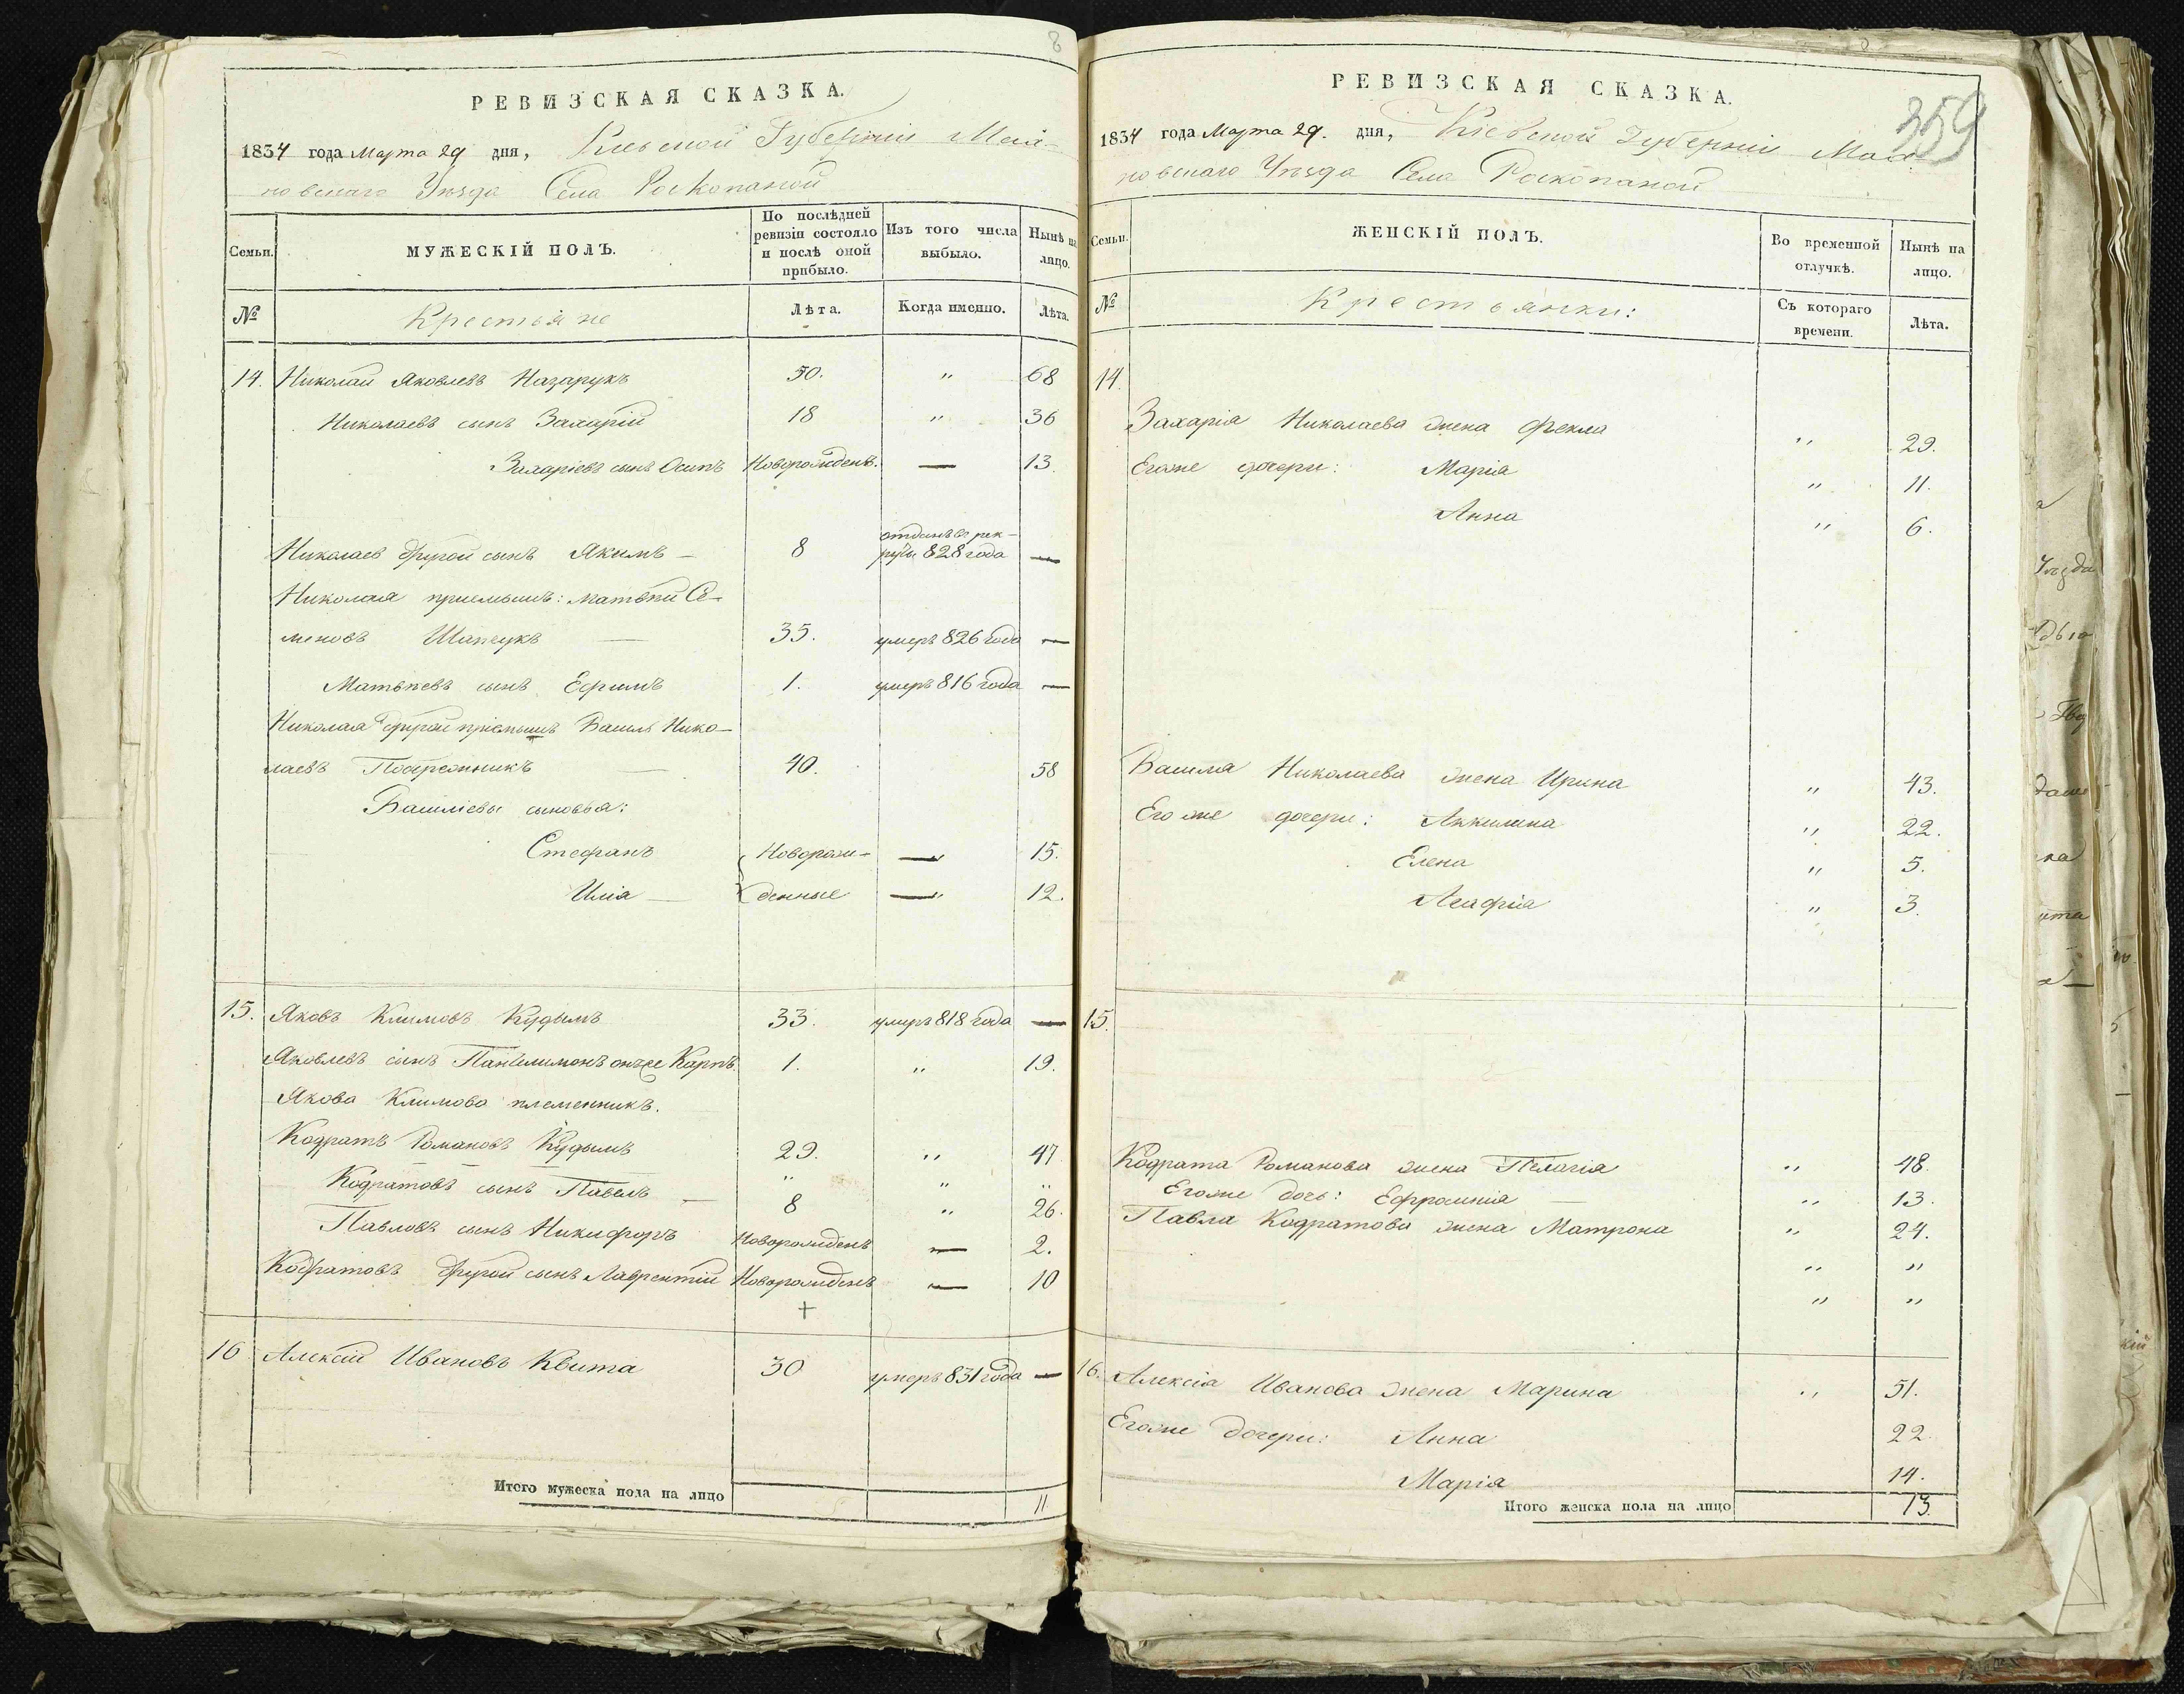 8
РЕВИЗСКАЯ СКАЗКА.
1834 года Марта 29 дня, Кіевской Губерніи
Уѣзда Села Роскопаной
Семьи.
МУЖЕСКІЙ ПОЛЪ.
По послѣдней ревизіи состояло и послѣ оной прибыло.
Изъ того числа выбыло.
Нынѣ на лицо.
№
Крестьяне
Лѣта.
Когда именно.
Лѣта.
14. Николай Яковлевъ Назарукъ 50. " 68
Николаевъ сынъ Захарій 18 " 36
Захаріевъ сынъ Осипъ Новорожденъ. — 13.
Николаев другой сынъ Якимъ — 8 отданъ въ рек-
руты 828 года —
Николая приемышъ: Матвѣй Се-
меновъ 35. умеръ 826 года —
Матвѣевъ сынъ Ефимъ 1. умеръ 816 года —
Николая другой пріемышъ Василь Нико-
лаевъ — 40. 58
Василіевы сыновья:
Стефанъ Новорож- — 15.
Илія — денные — 12.
15. Яковъ Климовъ Кудымъ 33. умеръ 818 года —
Яковлевъ сынъ Пантелимонъ онъже Карпъ. 1. " 19.
Якова Климова племенникъ.
Кодратъ Романовъ Кудымъ 29. " 47
" " "
Кодратовъ сынъ Павелъ — 8 " 26.
Павловъ сынъ Никифоръ Новорожденъ — 2.
Кодратовъ другой сынъ Лаврентій Новорожденъ — 10
+
16 Алексій Ивановъ Квита 30 умеръ 831 года —
Итого мужеска пола на лицо 11
359
РЕВИЗСКАЯ СКАЗКА.
1834 года Марта 29. дня, Кіевской Губерніи
Уѣзда Села Роскопаной
Семьи.
ЖЕНСКІЙ ПОЛЪ.
Во временной отлучкѣ.
Нынѣ на лицо.
№
Крестьянки:
Съ котораго времени.
Лѣта.
14.
Захарія Николаева жена Фекла " 29.
Егоже дочери: Марія " 11.
Анна " 6.
Василя Николаева жена Ирина " 43.
Егоже дочери: Аккилина " 22.
Елена " 5.
Агафія " 3.
15.
Кодрата Романова жена Пелагія " 48.
Егоже дочь: Ефросинія — " 13.
Павла Кодратова жена Матрона " 24.
" "
" "
16. Алексія Иванова жена Марина " 51.
Егоже дочери: Анна 22.
Марія 14.
Итого женска пола на лицо 13.